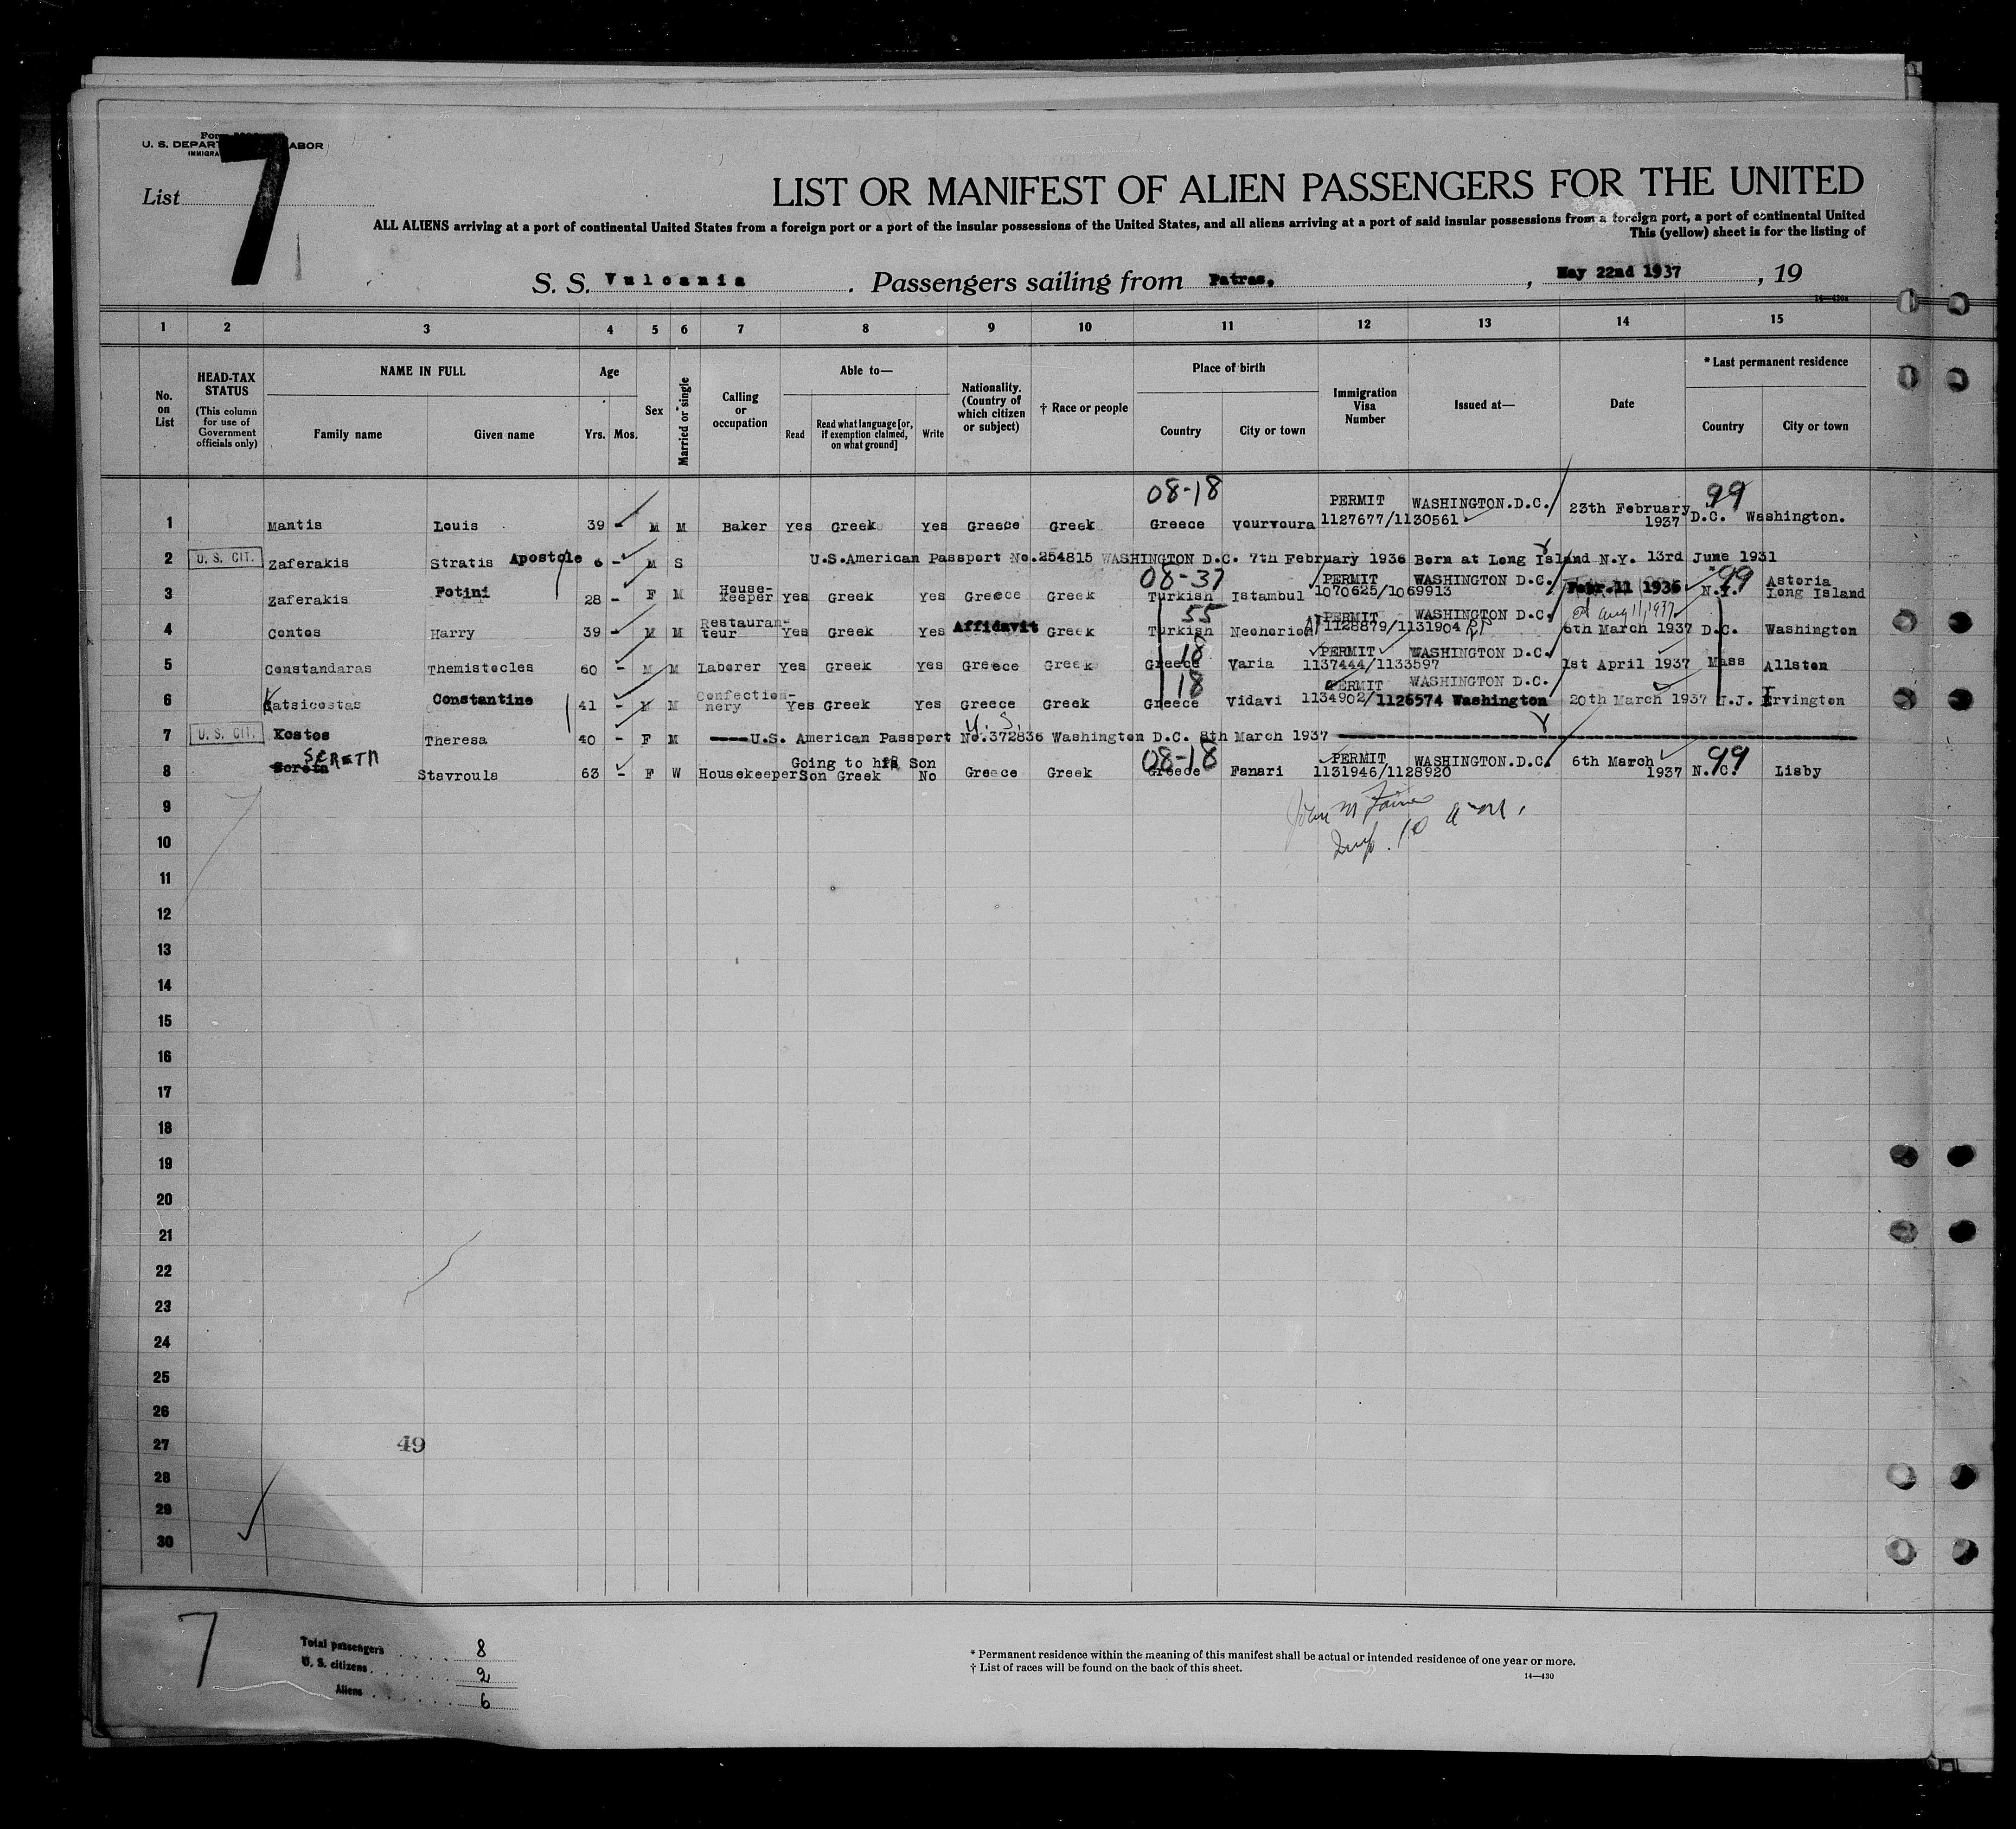 7
U. S. DEPAR ABOR
List
LIST OR MANIFEST OF ALIEN PASSENGERS FOR THE UNITED
ALL ALIENS arriving at a port of continental United States from a foreign port or a port of the insular possessions of the United States, and all aliens arriving at a port of said insular possessions from a foreign port, a port of continental United
This (yellow) sheet is for the listing of
S. S. Vulcania . Passengers sailing from Patras, , May 22nd 1937 , 19
1 2 3 4 5 6 7 8 9 10 11 12 13 14 15
No. on List
HEAD-TAX STATUS (This column for use of Government officials only)
NAME IN FULL Family name Given name
Age Yrs. Mos.
Sex
Married or single
Calling or occupation
Able to— Read Read what language [or, if exemption claimed, on what ground] Write
Nationality. (Country of which citizen or subject)
† Race or people
Place of birth Country City or town
Immigration Visa Number
Issued at—
Date
* Last permanent residence Country City or town
08-18 99
1 Mantis Louis 39 - M M Baker Yes Greek Yes Greece Greek Greece Vourvoura PERMIT 1127677/1130561 WASHINGTON.D.C. 23th February 1937 D.C. Washington.
2 U. S. CIT. Zaferakis Stratis Apostole 6 - M S U.S.American Passport No.254815 WASHINGTON D.C. 7th February 1936 Born at Long Island N.Y. 13rd June 1931
08-37 99
3 Zaferakis Fotini 28 - F M House-keeper Yes Greek Yes Greece Greek Turkish Istambul PERMIT 1070625/1069913 WASHINGTON D.C. Febr.11 1936 N.Y. Astoria Long Island
55 Aug 11, 1937
4 Contos Harry 39 - M M Restauran-teur Yes Greek Yes Affidavit Greek Turkish Neohorion PERMIT 1128879/1131904 WASHINGTON D.C. 6th March 1937 D.C. Washington
18
5 Constandaras Themistocles 60 - M M Laborer Yes Greek Yes Greece Greek Greece Varia PERMIT 1137444/1133597 WASHINGTON D.C. 1st April 1937 Mass Allston
18
6 Katsicostas Constantine 41 - M M Confection-nery Yes Greek Yes Greece Greek Greece Vidavi PERMIT 1134902/1126574 WASHINGTON D.C. Washington 20th March 1937 N.J. Irvington
U. S.
7 U. S. CIT. Kostos Theresa 40 - F M U.S. American Passport No.372836 Washington D.C. 8th March 1937
SERETA
08-18 99
8 Sereta Stavroula 63 - F W Housekeeper Going to his Son Son Greek No Greece Greek Greece Fanari PERMIT 1131946/1128920 WASHINGTON.D.C. 6th March 1937 N.C. Lisby
9
John M
10
Insp. 10 a-m.
11
12
13
14
15
16
17
18
19
20
21
22
23
24
25
26
27 49
28
29
30
7
Total passengers 8
U. S. citizens 2
Aliens 6
* Permanent residence within the meaning of this manifest shall be actual or intended residence of one year or more.
† List of races will be found on the back of this sheet.
14—430